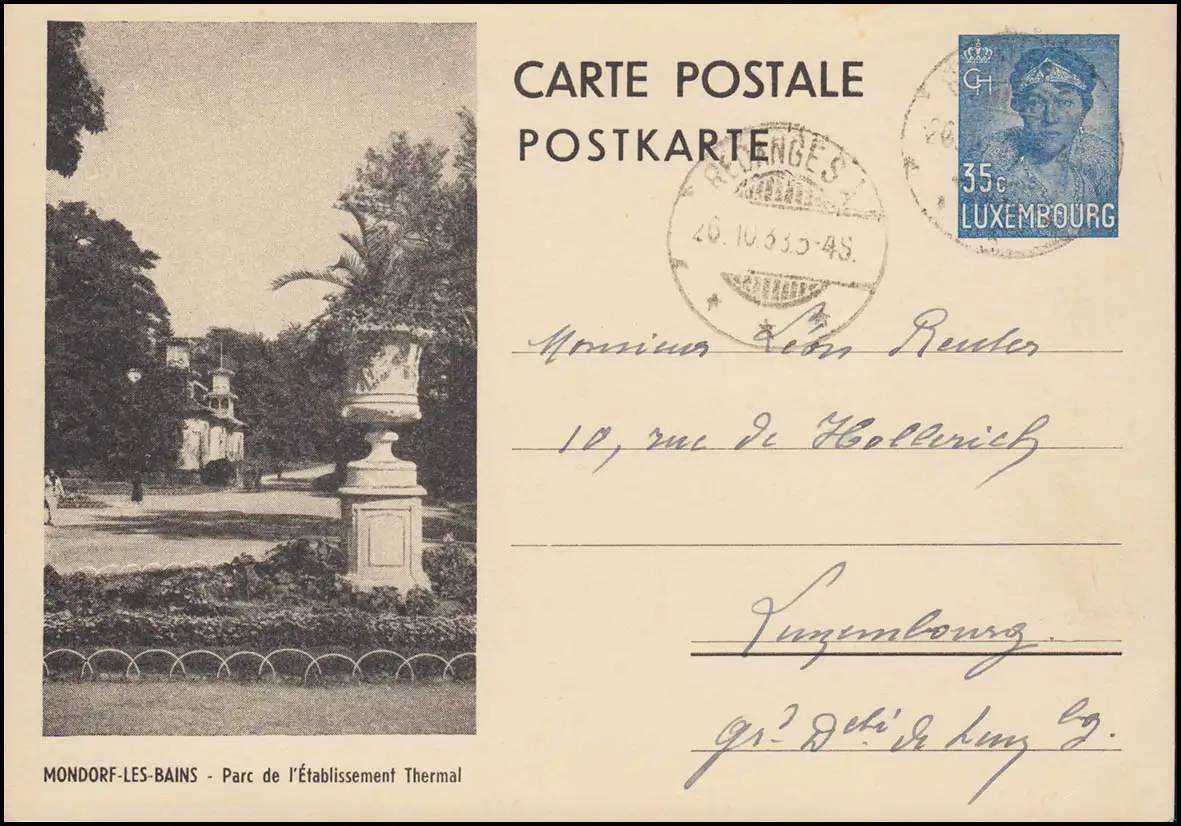 CARTE POSTALE
POSTKARTE
REDANGES
26.10.33.5-4S.
CH
35c
LUXEMBOURG
Monsieur Léon Reuter
10, rue de Hollerich
Luxembourg.
Grd Dché de Luxbg.
MONDORF-LES-BAINS - Parc de l'Établissement Thermal